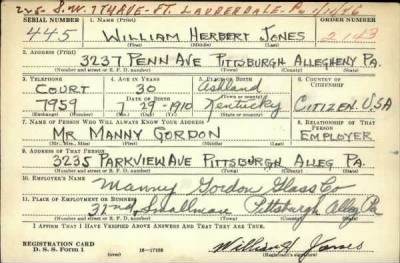 226 S.W. 7th AVE - FT. LAUDERDALE - 
SERIAL NUMBER 1. NAME (Print) ORDER NUMBER
445 WILLIAM HERBERT JONES 2143
(First) (Middle) (Last)
2. ADDRESS (Print)
3237 PENN AVE PITTSBURGH ALLEGHENY PA.
(Number and street or R. F. D. number) (Town) (County) (State)
3. TELEPHONE 4. AGE IN YEARS 5. PLACE OF BIRTH 6. COUNTRY OF CITIZENSHIP
COURT 30 Ashland
DATE OF BIRTH (Town or county)
7959 7-29-1910 Kentucky CITIZEN. USA
(Exchange) (Number) (Mo.) (Day) (Yr.) (State or country)
7. NAME OF PERSON WHO WILL ALWAYS KNOW YOUR ADDRESS 8. RELATIONSHIP OF THAT PERSON
MR MANNY GORDON EMPLOYER
(Mr., Mrs., Miss) (First) (Middle) (Last)
9. ADDRESS OF THAT PERSON
3235 PARKVIEW AVE PITTSBURGH ALLEG PA.
(Number and street or R. F. D. number) (Town) (County) (State)
10. EMPLOYER'S NAME
Manny Gordon Glass Co
11. PLACE OF EMPLOYMENT OR BUSINESS
32nd Smallman Pittsburgh Alleg Pa
(Number and street or R. F. D. number) (Town) (County) (State)
I AFFIRM THAT I HAVE VERIFIED ABOVE ANSWERS AND THAT THEY ARE TRUE.
REGISTRATION CARD
D. S. S. Form 1 16-17105 William H Jones
(Registrant's signature)